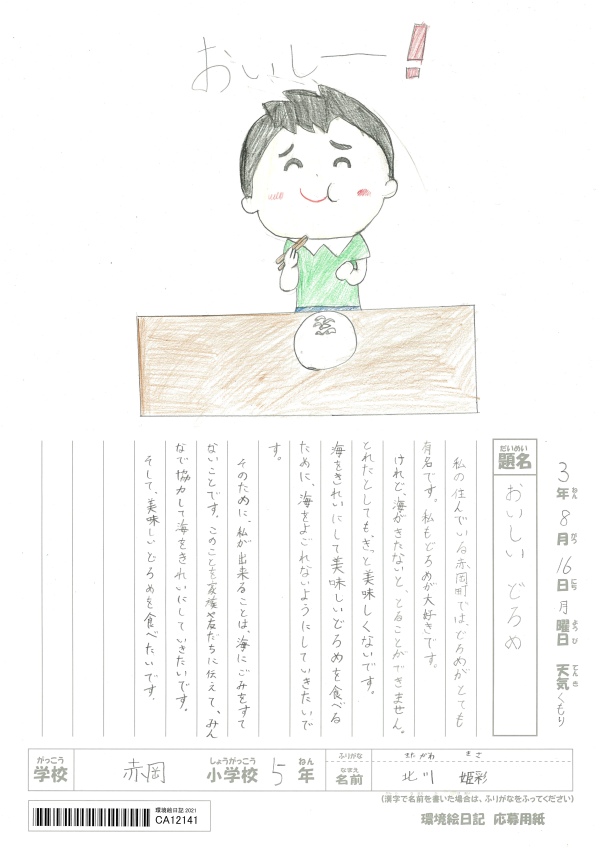 おいしー！
3年ねん8月がつ16日にち月曜日ようび 天気てんきくもり
題名だいめい おいしい どろめ
私の住んでいる赤岡町では、どろめがとても
有名です。私もどろめが大好きです。
けれど海がきたないと、とることができません。
とれたとしても、きっと美味しくないです。
海をきれいにして美味しいどろめを食べる
ために、海をよごれないようにしていきたいで
す。
そのために、私が出来ることは、海にごみをすて
ないことです。このことを家族や友だちに伝えて、みん
なで協力して海をきれいにしていきたいです。
そして、美味しいどろめを食べたいです。
がっこう しょうがっこう ねん ふりがな きたがわ きさ
学校 赤岡 小学校 5年 なまえ 名前 北川 姫彩
(漢字で名前を書いた場合は、ふりがなをふってください)
環境絵日記 応募用紙
環境絵日記 2021
CA12141